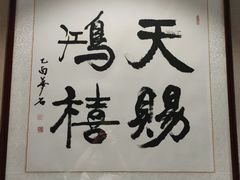 天賜
鴻禧
乙酉